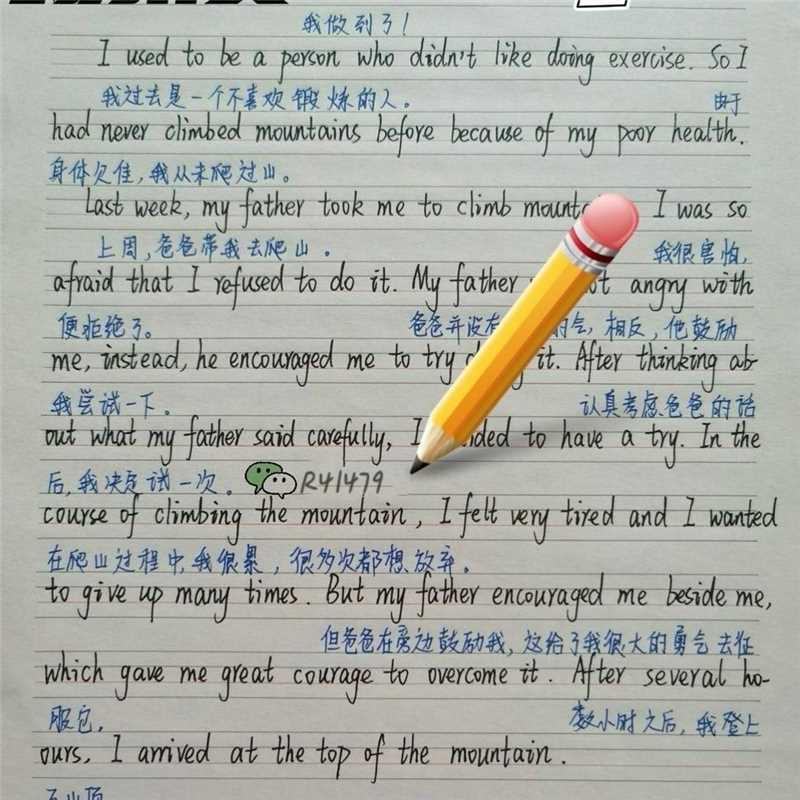 我做到了!
I used to be a person who didn't like doing exercise. So I
我过去是一个不喜欢锻炼的人。 由于
had never climbed mountains before because of my poor health.
身体欠佳,我从未爬过山。
Last week, my father took me to climb I was so
上周,爸爸带我去爬山。 我很害怕,
afraid that I refused to do it. My father angry with
便拒绝了。 爸爸并没有 气,相反,他鼓励
me, instead, he encouraged me to try it. After thinking ab-
我尝试一下。 认真考虑爸爸的话
out what my father said carefully, I to have a try. In the
后,我决定试一次。 R41479
course of climbing the mountain, I felt very tired and I wanted
在爬山过程中,我很累,很多次都想放弃。
to give up many times. But my father encouraged me beside me,
但爸爸在旁边鼓励我,这给了我很大的勇气去征
which gave me great courage to overcome it. After several ho-
服它。 数小时之后,我登上
ours, I arrived at the top of the mountain.